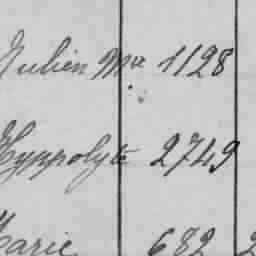 Aubien Mce 1128
Hyppolyte 2749
Marie 682 2